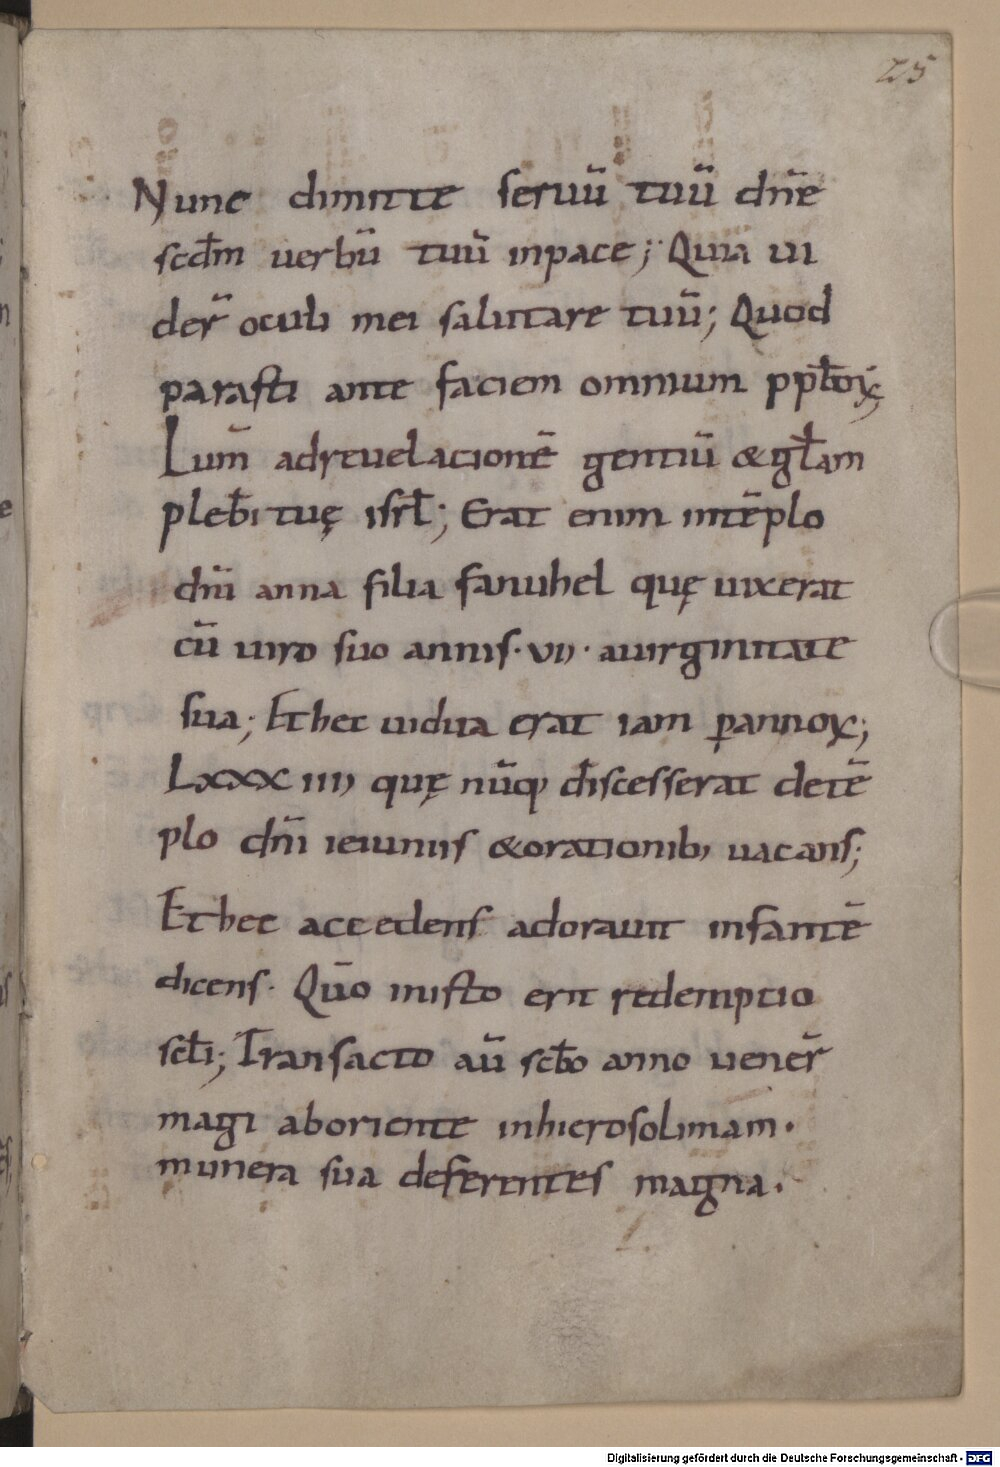 25
Nunc dimitte seruū tuū dn̄e
scdm̄ uerbū tuū inpace; Quia ui
der̄ oculi mei salutare tuū; Quod
parasti ante faciem omnium ppl̄oꝝ;
Lum̄ adreuelacionē gentiū &gl̄am
pleb̄i tuę isrl̄; Erat enim intēplo
dn̄i anna filia fanuhel quę uixerat
cū uiro suo annis · VII · auirginitate
sua; Et hec uidua erat iam ꝑannoꝝ;
LXXX IIII quę nūq, discesserat detē
plo dn̄i ieiuniis &orationib, uacans;
Et hec accedens adorauit infantē
dicens · Quō inisto erit redemptio
scl̄i; Transacto aū scd̄o anno uener̄
magi aboriente inhierosolimam ·
munera sua deferentes magna ·
Digitalisierung gefördert durch die Deutsche Forschungsgemeinschaft - DFG